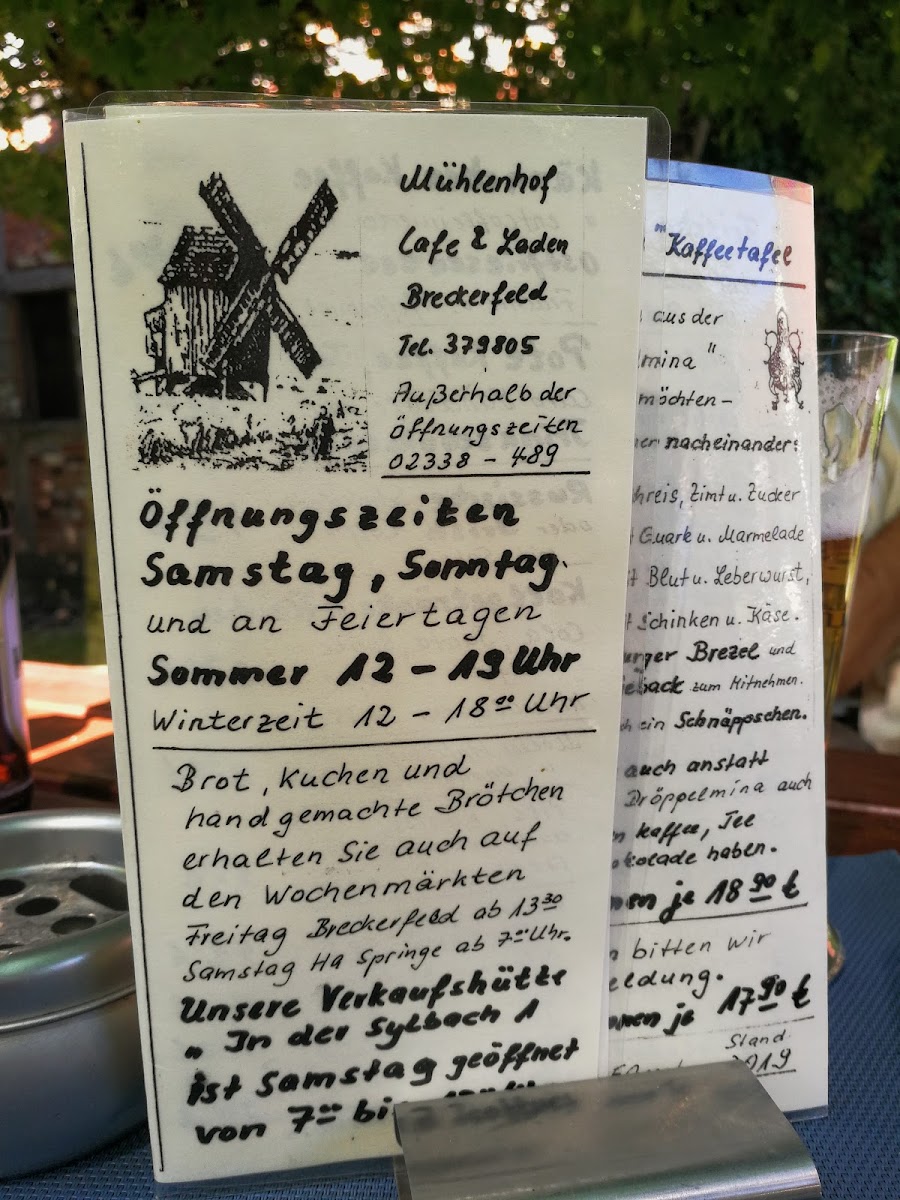 Mühlenhof
Cafe & Laden
Breckerfeld
Tel. 379805
Außerhalb der
Öffnungszeiten
02338 - 489
Öffnungszeiten
Samstag, Sonntag.
und an Feiertagen
Sommer 12 - 19 Uhr
Winterzeit 12 - 18 00 Uhr
Brot, Kuchen und
handgemachte Brötchen
erhalten Sie auch auf
den Wochenmärkten
Freitag Breckerfeld ab 13 30
Samstag Ha Springe ab 7 00 Uhr.
Unsere Verkaufshütte
„ In der Sylbach 1
ist Samstag geöffnet
von 7 00
"Kaffeetafel
aus der
mina"
möchten -
nacheinander:
hreis, Zimt u. Zucker
Quark u. Marmelade
Blut u. Leberwurst,
Schinken u. Käse.
urger Brezel und
ieback zum Mitnehmen.
ein Schnäppschen.
auch anstatt
Dröppelmina auch
n Kaffee, Tee
okolade haben.
nen je 18 90 €
bitten wir
eldung.
nen je 17 90 €
Stand
2019